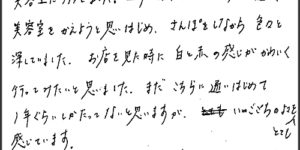 美容室をかえようと思いはじめ、さんぽをしながら色々と
深していました。お店を見た時に白と赤の感じがかわいく
行ってみたいと思いました。まだこちらに通いはじめて
1年ぐらいしかたってないと思いますが、いごこちのよさを
とても
感じています。